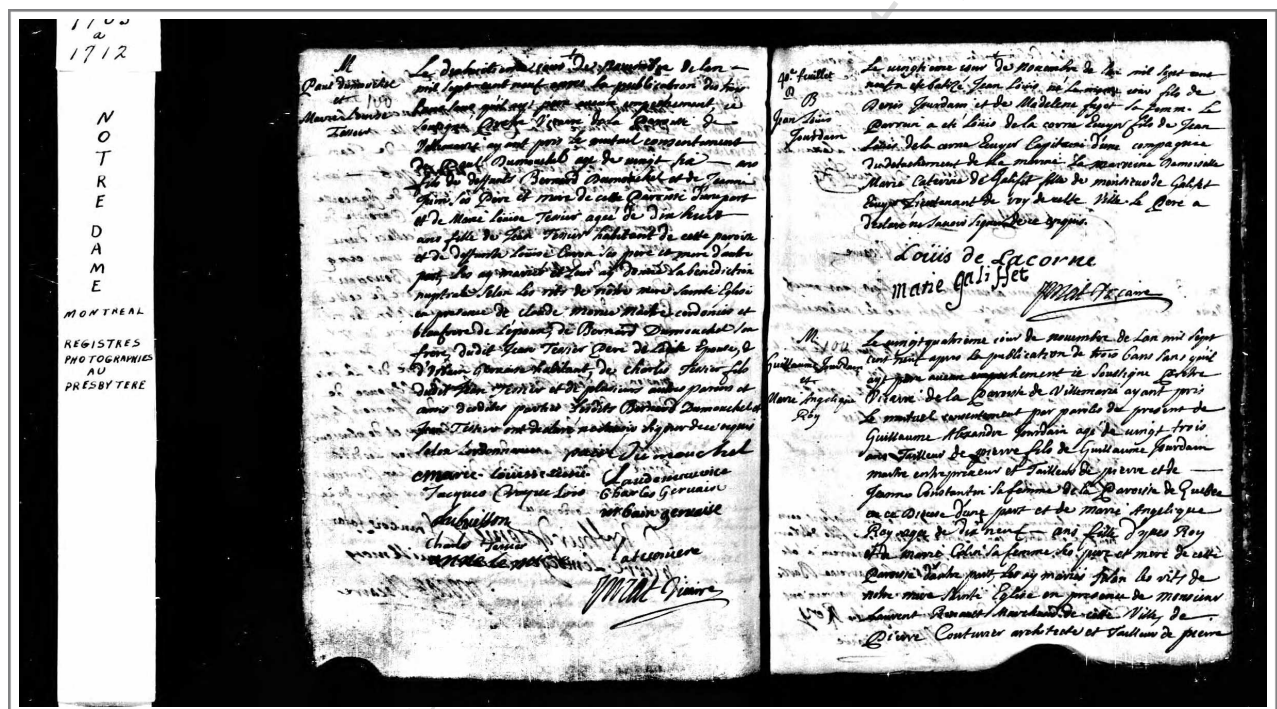 1705
a
1712
NOTRE
DAME
MONTREAL
REGISTRES
PHOTOGRAPHIES
AU
PRESBYTERE
M
Paul dumouchel
et
Marie Louise
Tessier
Le dixhuitieme jour de Novembre de lan
mil sept cent neuf apres la publication des trois
bans sans quil ayt paru aucun empechement, ie
soussigné Prêtre Vicaire de la Paroisse de
Villemarie ayant pris le mutuel consentement
de Paul Dumouchel agé de vingt six ans
fils de deffunts Bernard Dumouchel et de Jeanne
Juin ses Pere et mere de cette Paroisse d'une part
et de Marie Louise Tessier agée de dix huit
ans fille de Jean Tessier habitant de cette paroisse
et de deffunte Louise Caron ses pere et mere d'autre
part, Les ay mariés et leur ay donné la benediction
nuptiale selon les rits de nôtre mere Sainte Eglise
en presence de claude Morice Maître cordonier et
de Bernard Dumouchel son
frere, dudit Jean Tessier Pere de ladite Epouse, de
d'Urbain Gervaise habitant, de charles Tessier fils
dudit Jean Tessier et de plusieurs autres parens et
amis desdites parties Lesdits Bernard Dumouchel et
Jean Tessier ont declaré ne sçavoir signer de ce enquis
selon l'ordonnance. paul Dumouchel
marie louise tessié
Claude maurice
Jacques
Charles Gervaise
urbain gervaise
Dubuisson
Charles Tessier
latuniere
priat Vicaire
40e feuillet
B
Jean Louis
Jourdain
Le vingtieme jour de Novembre de lan mil sept cent
neuf a eté batizé Jean Louis, né le mesme jour fils de
Denis Jourdain et de Madelene faget sa femme. Le
Parrain a eté Louis de la corne Ecuyer fils de Jean
Louis de la corne Ecuyer Capitaine d'une compagnie
du detachement de la marine La marreine Damoiselle
Marie Caterine de Galifet fille de monsieur de Galifet
Ecuyer Lieutenant de roy de cette Ville. Le Pere a
declaré ne sçavoir signer de ce enquis.
Loüis de Lacorne
marie galiffet
priat Vicaire
M
Guillaume Jourdain
et
Marie Angelique
Roy
Le vingtquatrième jour de novembre de Lan mil sept
cent neuf apres la publication de trois bans sans quil
ayt paru aucun empechement ie soussigné Prêtre
Vicaire de la Paroisse de Villemarie ayant pris
Le mutuel consentement par paroles de present de
Guillaume Alexandre Jourdain agé de vingt trois
ans Tailleur de pierre fils de Guillaume Jourdain
maitre entrepreneur et Tailleur de pierre et de
Jeanne Constantin sa femme de la Paroisse de Quebec
en ce Diocese d'une part et de Marie Angelique
Roy agée de dix neuf ans fille d'yves Roy
et de marie Colin sa femme ses pere et mere de cette
Paroisse d'autre part, Les ay mariés selon les rits de
notre mere Sainte Eglise en presence de monsieur
Laurent Renault Marchand de cette Ville, de
Pierre Couturier architecte et Tailleur de pierre